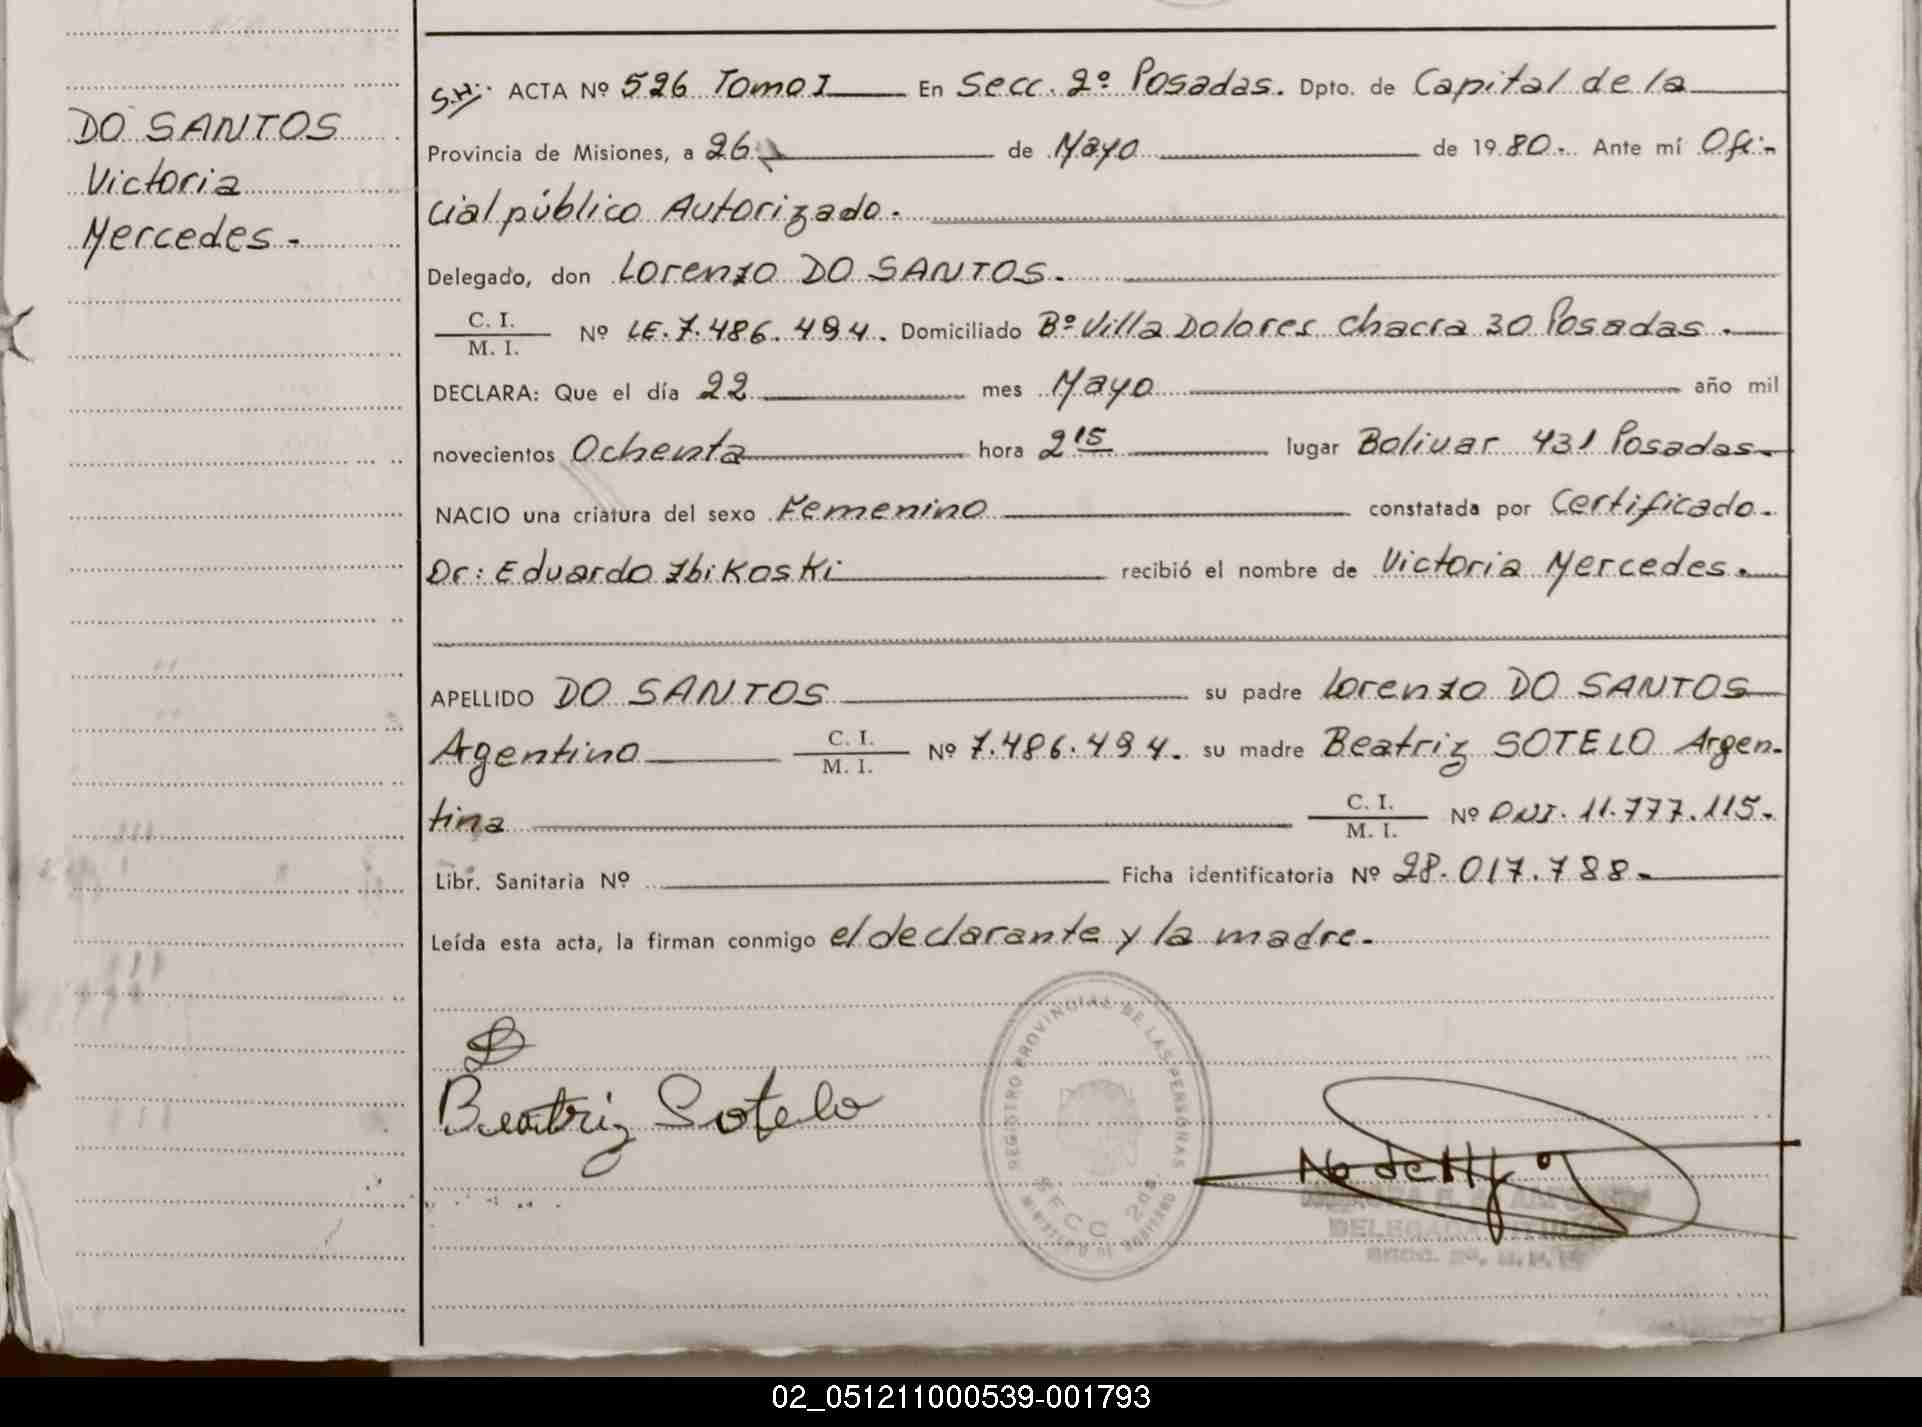 DO SANTOS
Victoria
Mercedes.-
S.H: ACTA Nº 526 Tomo I En Secc. 2º Posadas. Dpto. de Capital de la
Provincia de Misiones, a 26 de Mayo de 1980.- Ante mí Ofi-
cial público Autorizado.
Delegado, don Lorenzo DO SANTOS.
C. I.
M. I. Nº LE.7.486.494. Domiciliado Bº Villa Dolores Chacra 30 Posadas.
DECLARA: Que el día 22 mes Mayo año mil
novecientos Ochenta hora 2 15 lugar Bolivar 431 Posadas.
NACIO una criatura del sexo Femenino constatada por Certificado.
Dr: Eduardo Zbikoski recibió el nombre de Victoria Mercedes.
APELLIDO DO SANTOS su padre Lorenzo DO SANTOS
Argentino C. I.
M. I. Nº 7.486.494. su madre Beatriz SOTELO Argen-
tina C. I.
M. I. Nº DNI. 11.777.115.
Libr. Sanitaria Nº Ficha identificatoria Nº 28.017.788.
Leída esta acta, la firman conmigo el declarante y la madre.
Beatriz Sotelo
REGISTRO PROVINCIAL DE LAS PERSONAS
SECC 2da.
MINISTERIO DE GOBIERNO
02_051211000539-001793